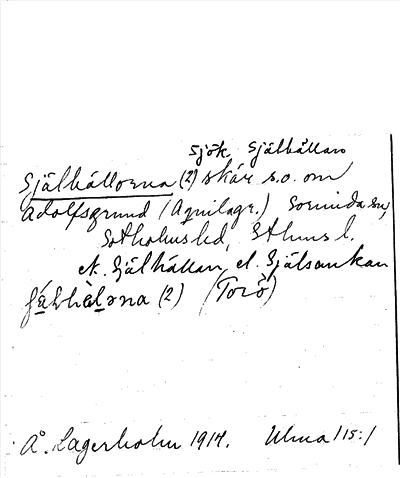 Sjök. Själhällan
Själhällorna (2) skär s.o. om
Adolfsgrund (Aquilagr.) Sorunda sn,
Sotholms hd, Sthms l.
ek. Själhällan, el. Själsankan
(2) (Torö)
Å. Lagerholm 1914. Ulma 115:1